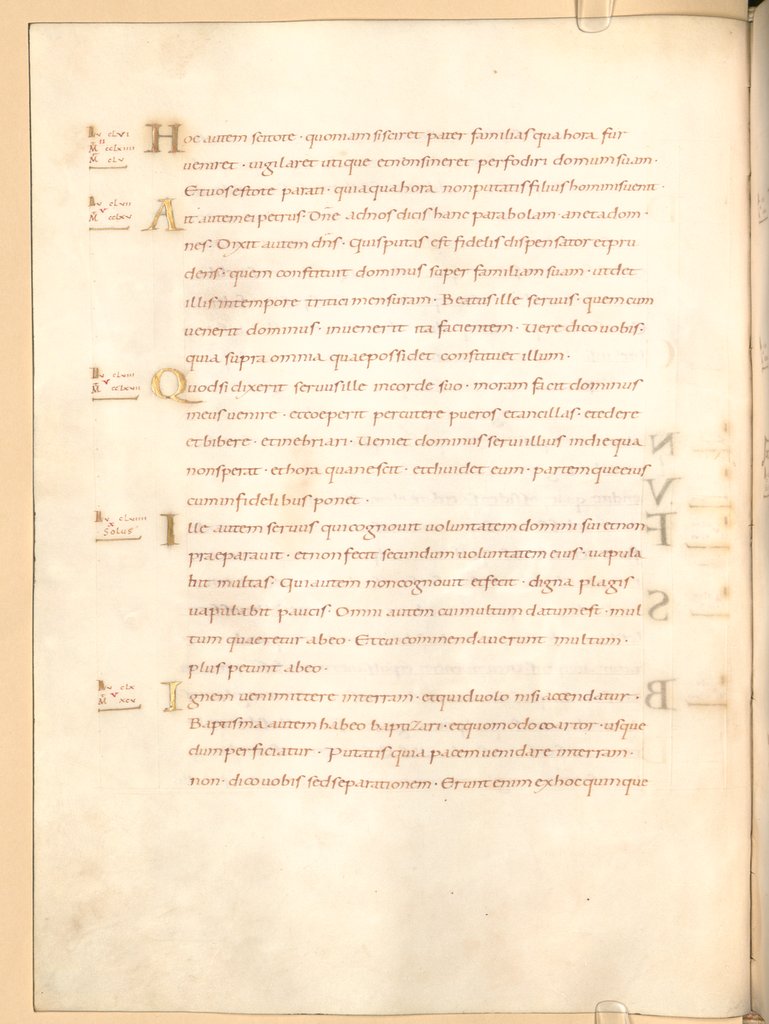 Hoc autem scitote · quoniam si sciret pater familias qua hora fur
veniret · vigilaret utique et non sineret perfodiri domum suam ·
Et vos estote parati · quia qua hora non putatis filius hominis venit ·
Ait autem ei petrus · Dñe ad nos dicis hanc parabolam · an et ad om ·
nes · Dixit autem dñs · Quis putas est fidelis dispensator et pru
dens · quem constituit dominus super familiam suam · ut det
illis in tempore tritici mensuram · Beatus ille servus · quem cum
venerit dominus · invenerit ita facientem · Vere dico vobis ·
quia supra omnia quae possidet constituet illum ·
Quod si dixerit servus ille in corde suo · moram facit dominus
meus venire · et coeperit percutere pueros et ancillas · et edere
et bibere · et inebriari · Veniet dominus servi illius in die qua
non sperat · et hora qua nescit · et dividet eum · partemque eius
cum infidelibus ponet ·
Ille autem servus qui cognovit voluntatem domini sui et non
praeparavit · et non fecit secundum voluntatem eius · vapula
bit multas · Qui autem non cognovit et fecit · digna plagis
vapulabit paucis · Omni autem cui multum datum est · mul
tum quaeretur ab eo · Et cui commendaverunt multum ·
plus petunt ab eo ·
Ignem veni mittere in terram · et quid volo nisi accendatur ·
Baptisma autem habeo baptizari · et quomodo coartor · usque
dum perficiatur · Putatis quia pacem veni dare in terram ·
non · dico vobis sed separationem · Erunt enim ex hoc quinque